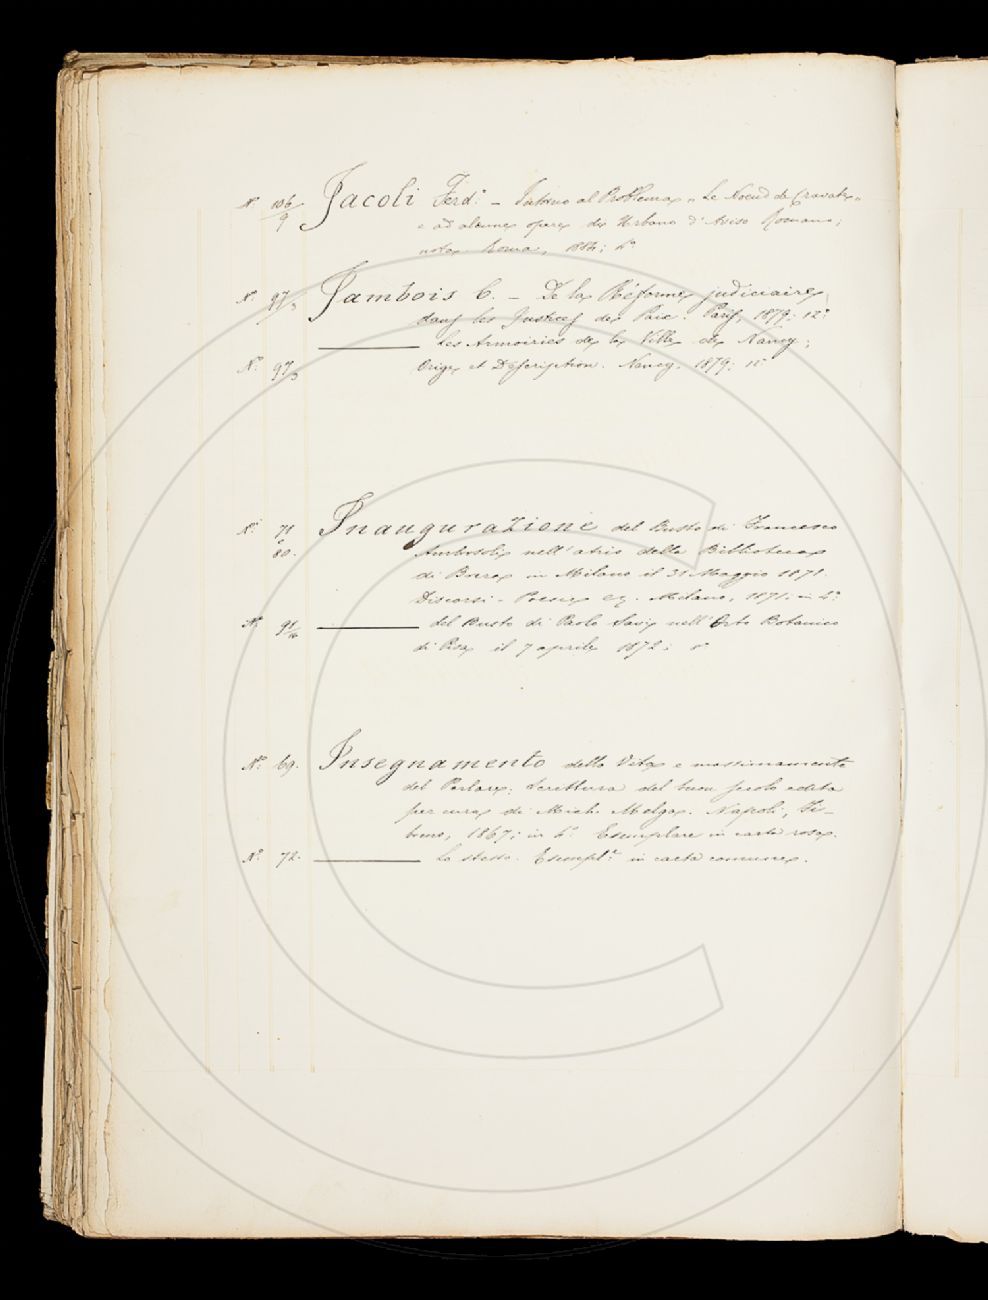 N. 106/9 Jacoli Ferd.° - Intorno al Problema „ Le Noeud de Cravate „
e ad alcune opere di Urbano d'Aviso Romano;
nota. Roma, 188 ; 4°
N. 97/ Jambois C. - De la Réforme judiciaire,
dans les Justices de Paix. Paris, 1879; 12°
——— Les Armoiries de la Ville de Nancy;
N. 97/ Orig. et Déscription. Nancy, 1879; 12°
N. 71 Inaugurazione del Busto di Francesco
80. Ambrosoli nell'atrio della Biblioteca
di Brera in Milano il 31 Maggio 1871.
Discorsi - Poesie ez. Milano, 1871. in 4°
N. 91/16 ——— del Busto di Paolo Savi nell'Orto Botanico
di Pisa il 7 aprile 1872: 8°
N.° 69. Insegnamento della Vita e massimamente
del Parlare; Scrittura del buon secolo edita
per cura di Mich. Melga. Napoli, Ti-
1867; in 4.° Esemplare in carta rosa.
N.° 72. ——— Lo stesso. Esempl.e in carta comune.